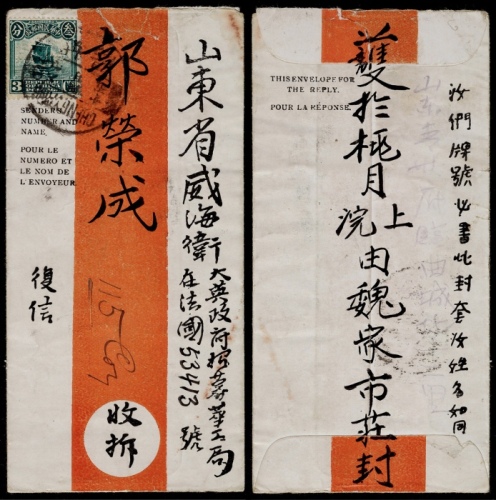 山東省威海衛
大英政府招募華工局
在法國53413號
郭榮成
收拆
復信
115 Coy
SENDERS
NUMBER AND
NAME
POUR LE
NUMERO ET
LE NOM DE
L'ENVOYEUR
分
叁
3
THIS ENVELOPE FOR
THE REPLY.
POUR LA RÉPONSE.
汝們牌號必書此封套汝姓名如同
護於桃月
上浣由魏家市莊封